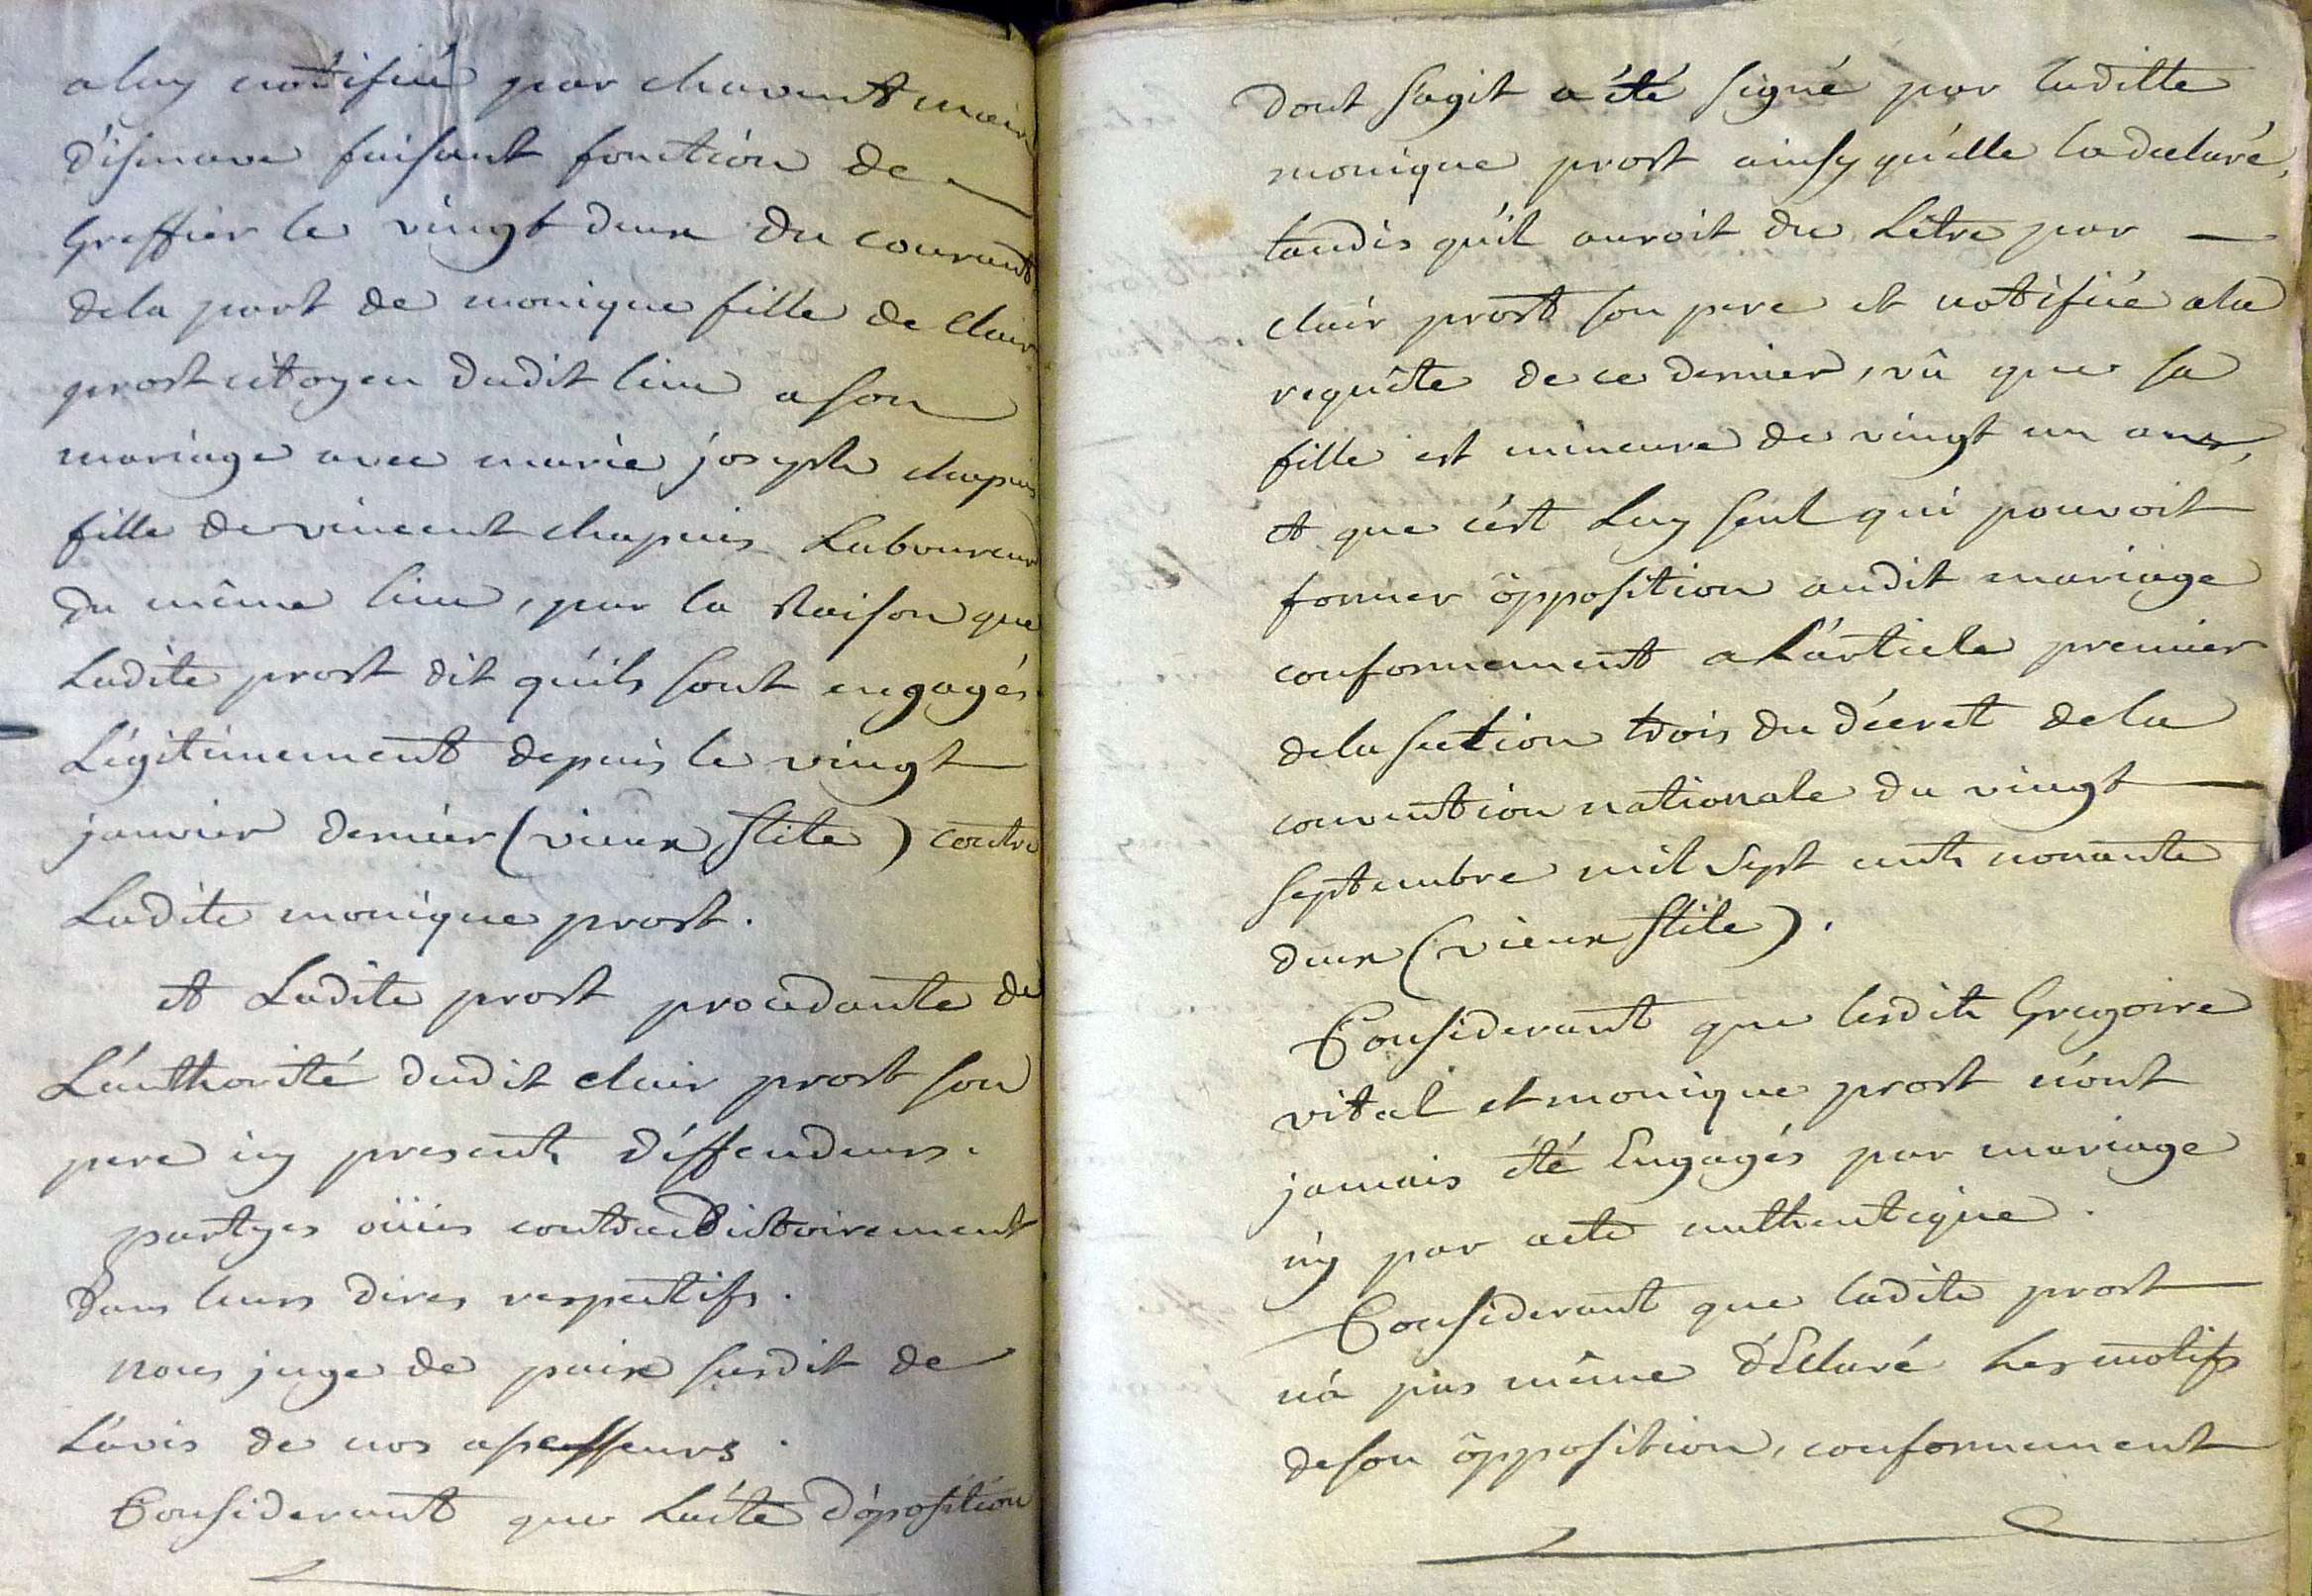 a luy notifiée par chavent maire
d'ismare faisant fonction de
Greffier le vingt deux du courant
dela part de monique fille de clair
prost citoyen dudit lieu a son
mariage avec marie joseph chapuis
fille de vincent chapuis Laboureur
du même lieu, par la Raison que
Ladite prost dit qu'ils sont engagés
Légitimement depuis le vingt
janvier dernier (vieux stile) contre
Ladite monique prost.
et Ladite prost procedante de
L'authorité dudit clair prost son
pere icy present, déffendeurs.
partyes oüies contradictoirement
dans leurs dires respectifs.
nous juge de paix susdit de
L'avis de nos assesseurs.
Considerant que L'acte d'óposition
dont s'agit a été signé par laditte
monique prost ainsy qu'elle la declaré,
tandis qu'il auroit du L'être par
clair prost son pere et notifiée ala
requête de ce dernier, vû que sa
fille est mineure de vingt un ans,
et que c'est Luy seul qui pouvoit
former ôpposition audit mariage
conformement a L'article premier
dela section trois du décret dela
convention nationale du vingt
septembre mil sept cents nonante
deux (vieux stile).
Considerant que lesdits Gregoire
vital et monique prost n'ont
jamais été Engagés par mariage
ny par acte authentique.
Considerant que ladite prost
n'a pas même déClaré Les motifs
de son ôpposition, conformement